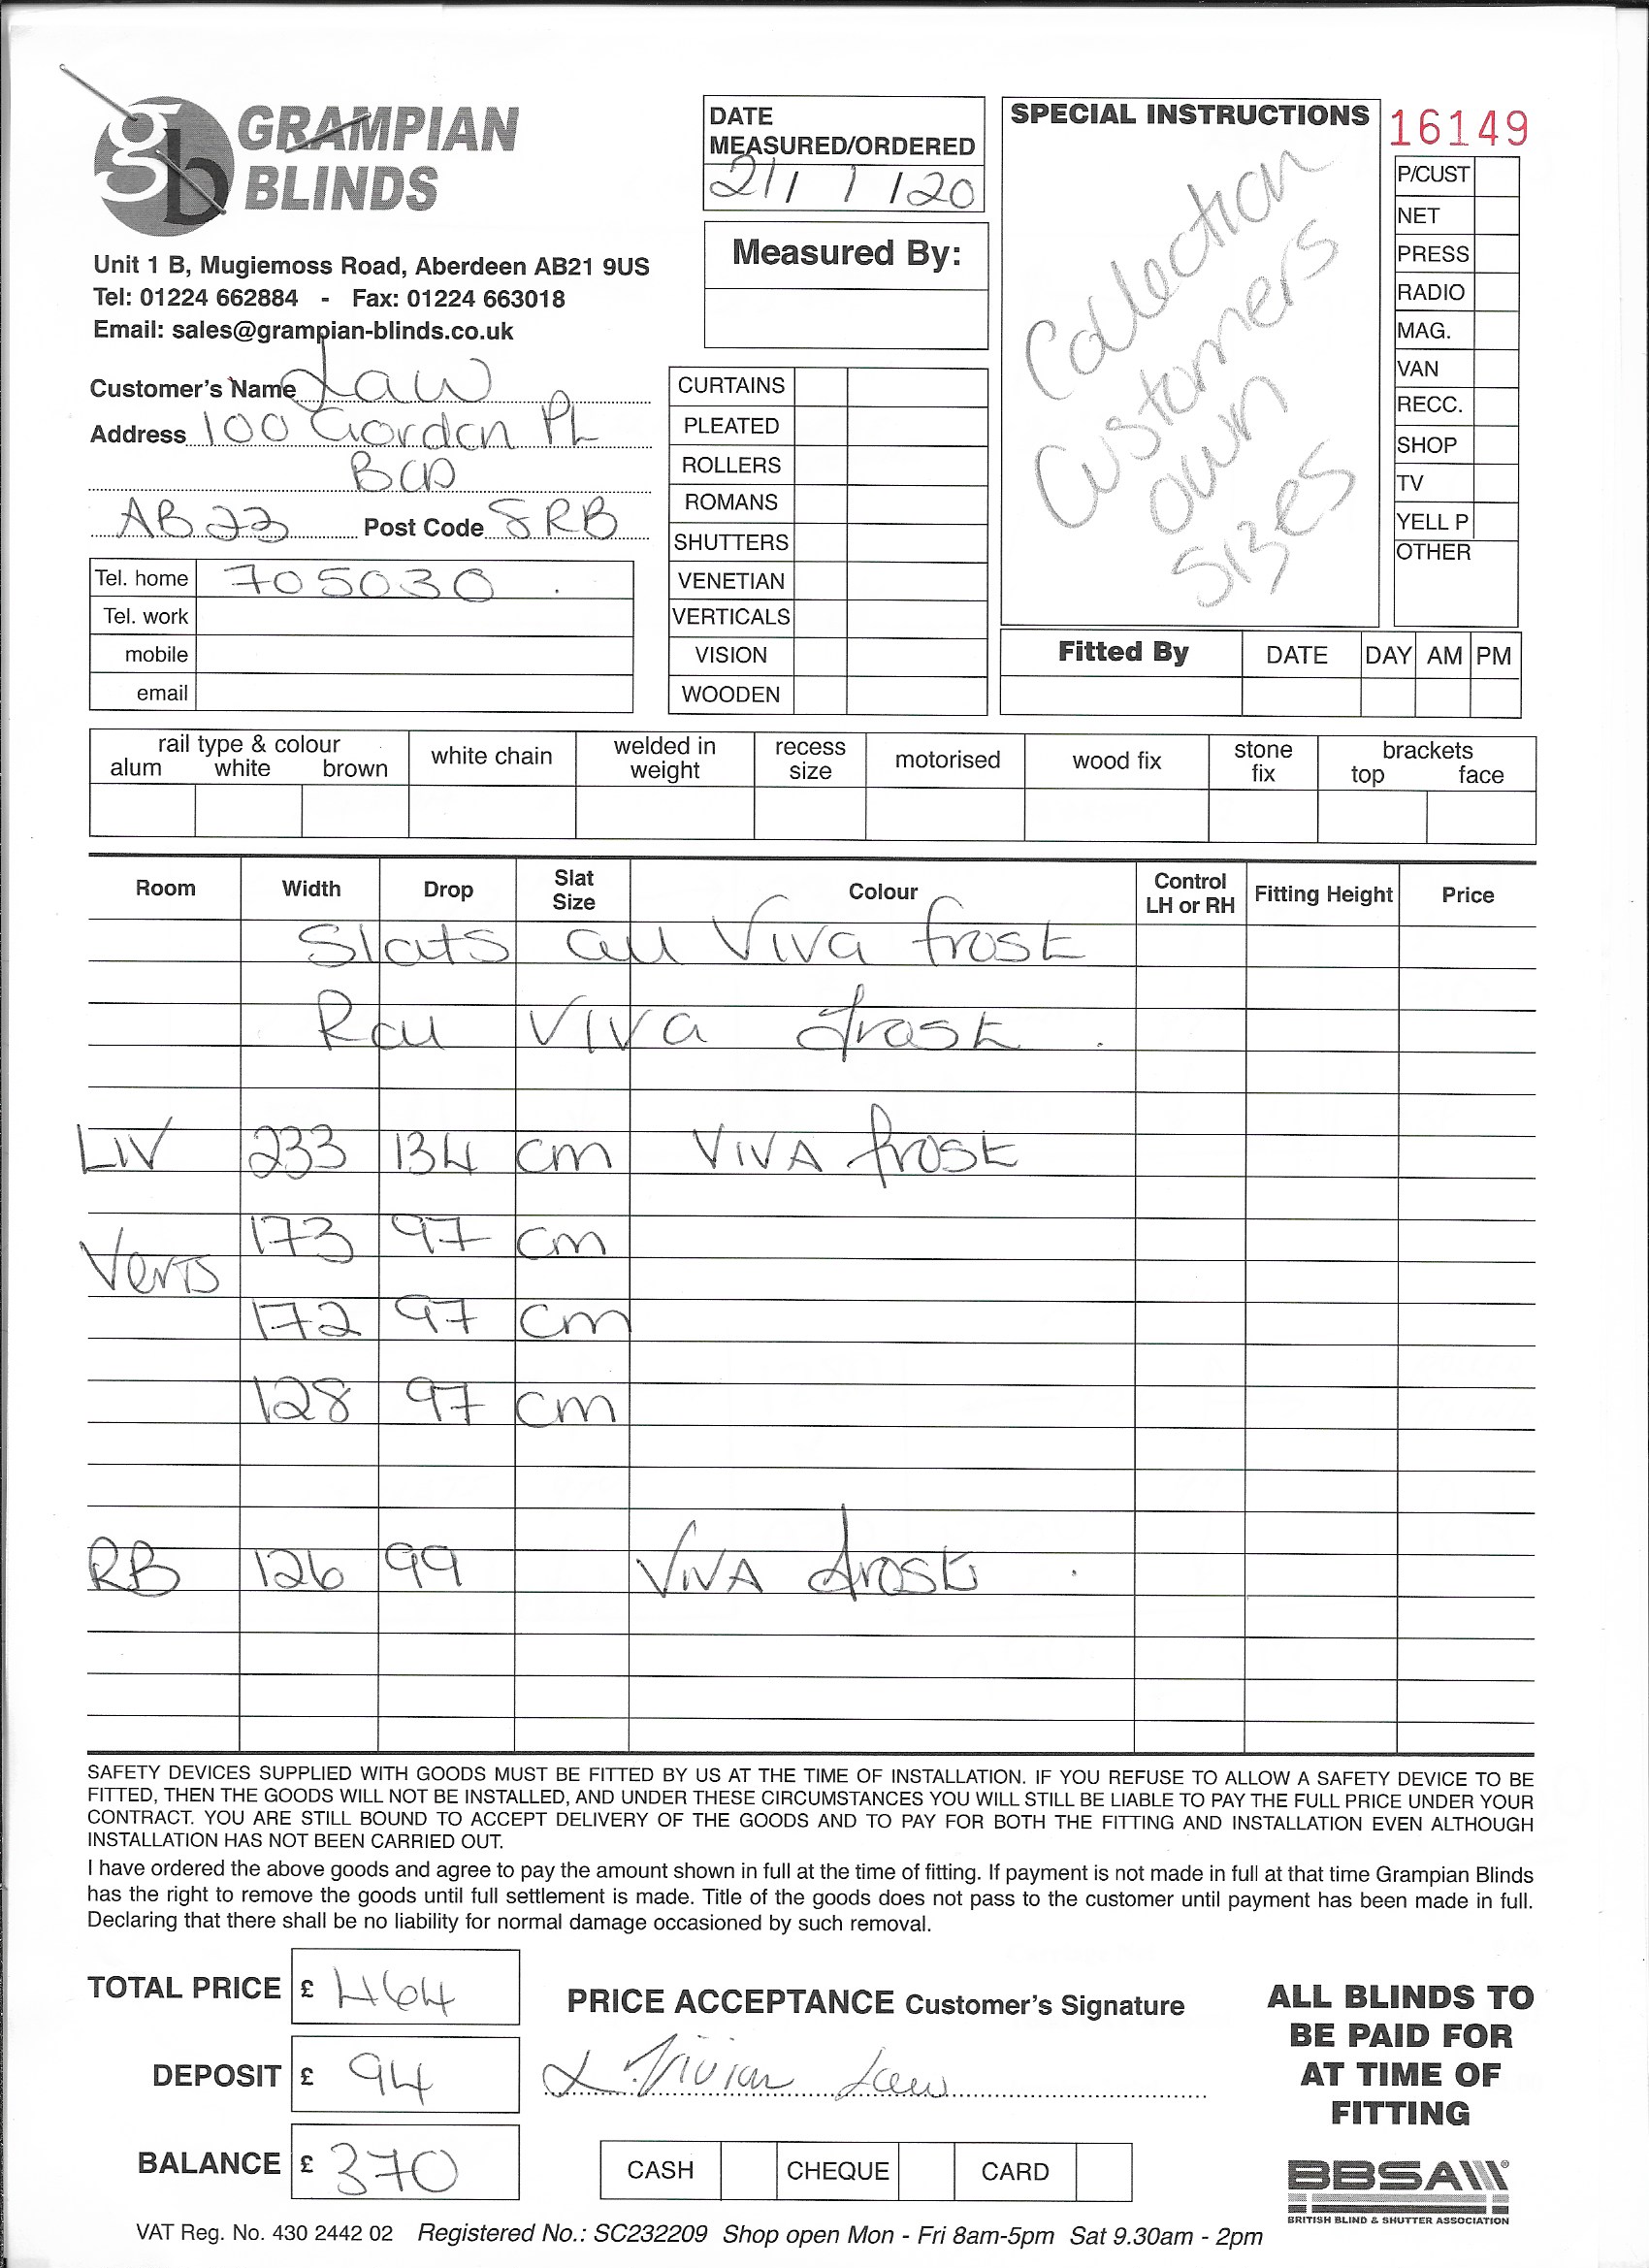 gb GRAMPIAN
BLINDS
Unit 1 B, Mugiemoss Road, Aberdeen AB21 9US
Tel: 01224 662884 - Fax: 01224 663018
Email: sales@grampian-blinds.co.uk
Customer's Name Law
Address 100 Gordon PL
BOD
AB23 Post Code 8RB
Tel. home 705030
Tel. work
mobile
email
DATE
MEASURED/ORDERED
21/1/20
Measured By:
CURTAINS
PLEATED
ROLLERS
ROMANS
SHUTTERS
VENETIAN
VERTICALS
VISION
WOODEN
SPECIAL INSTRUCTIONS
Collection
Customers
own
sizes
16149
P/CUST
NET
PRESS
RADIO
MAG.
VAN
RECC.
SHOP
TV
YELL P
OTHER
Fitted By DATE DAY AM PM
rail type & colour
alum white brown
white chain
welded in
weight
recess
size
motorised
wood fix
stone
fix
brackets
top face
Room Width Drop Slat Size Colour Control LH or RH Fitting Height Price
Slats all Viva frost
Roll VIVA frost
LIV 233 134 cm VIVA frost
173 97 cm
Verts
172 97 cm
128 97 cm
RB 126 99 VIVA frost
SAFETY DEVICES SUPPLIED WITH GOODS MUST BE FITTED BY US AT THE TIME OF INSTALLATION. IF YOU REFUSE TO ALLOW A SAFETY DEVICE TO BE
FITTED, THEN THE GOODS WILL NOT BE INSTALLED, AND UNDER THESE CIRCUMSTANCES YOU WILL STILL BE LIABLE TO PAY THE FULL PRICE UNDER YOUR
CONTRACT. YOU ARE STILL BOUND TO ACCEPT DELIVERY OF THE GOODS AND TO PAY FOR BOTH THE FITTING AND INSTALLATION EVEN ALTHOUGH
INSTALLATION HAS NOT BEEN CARRIED OUT.
I have ordered the above goods and agree to pay the amount shown in full at the time of fitting. If payment is not made in full at that time Grampian Blinds
has the right to remove the goods until full settlement is made. Title of the goods does not pass to the customer until payment has been made in full.
Declaring that there shall be no liability for normal damage occasioned by such removal.
TOTAL PRICE £ 464
DEPOSIT £ 94
BALANCE £ 370
PRICE ACCEPTANCE Customer's Signature
Vivian Law
CASH CHEQUE CARD
ALL BLINDS TO
BE PAID FOR
AT TIME OF
FITTING
BBSA
BRITISH BLIND & SHUTTER ASSOCIATION
VAT Reg. No. 430 2442 02 Registered No.: SC232209 Shop open Mon - Fri 8am-5pm Sat 9.30am - 2pm